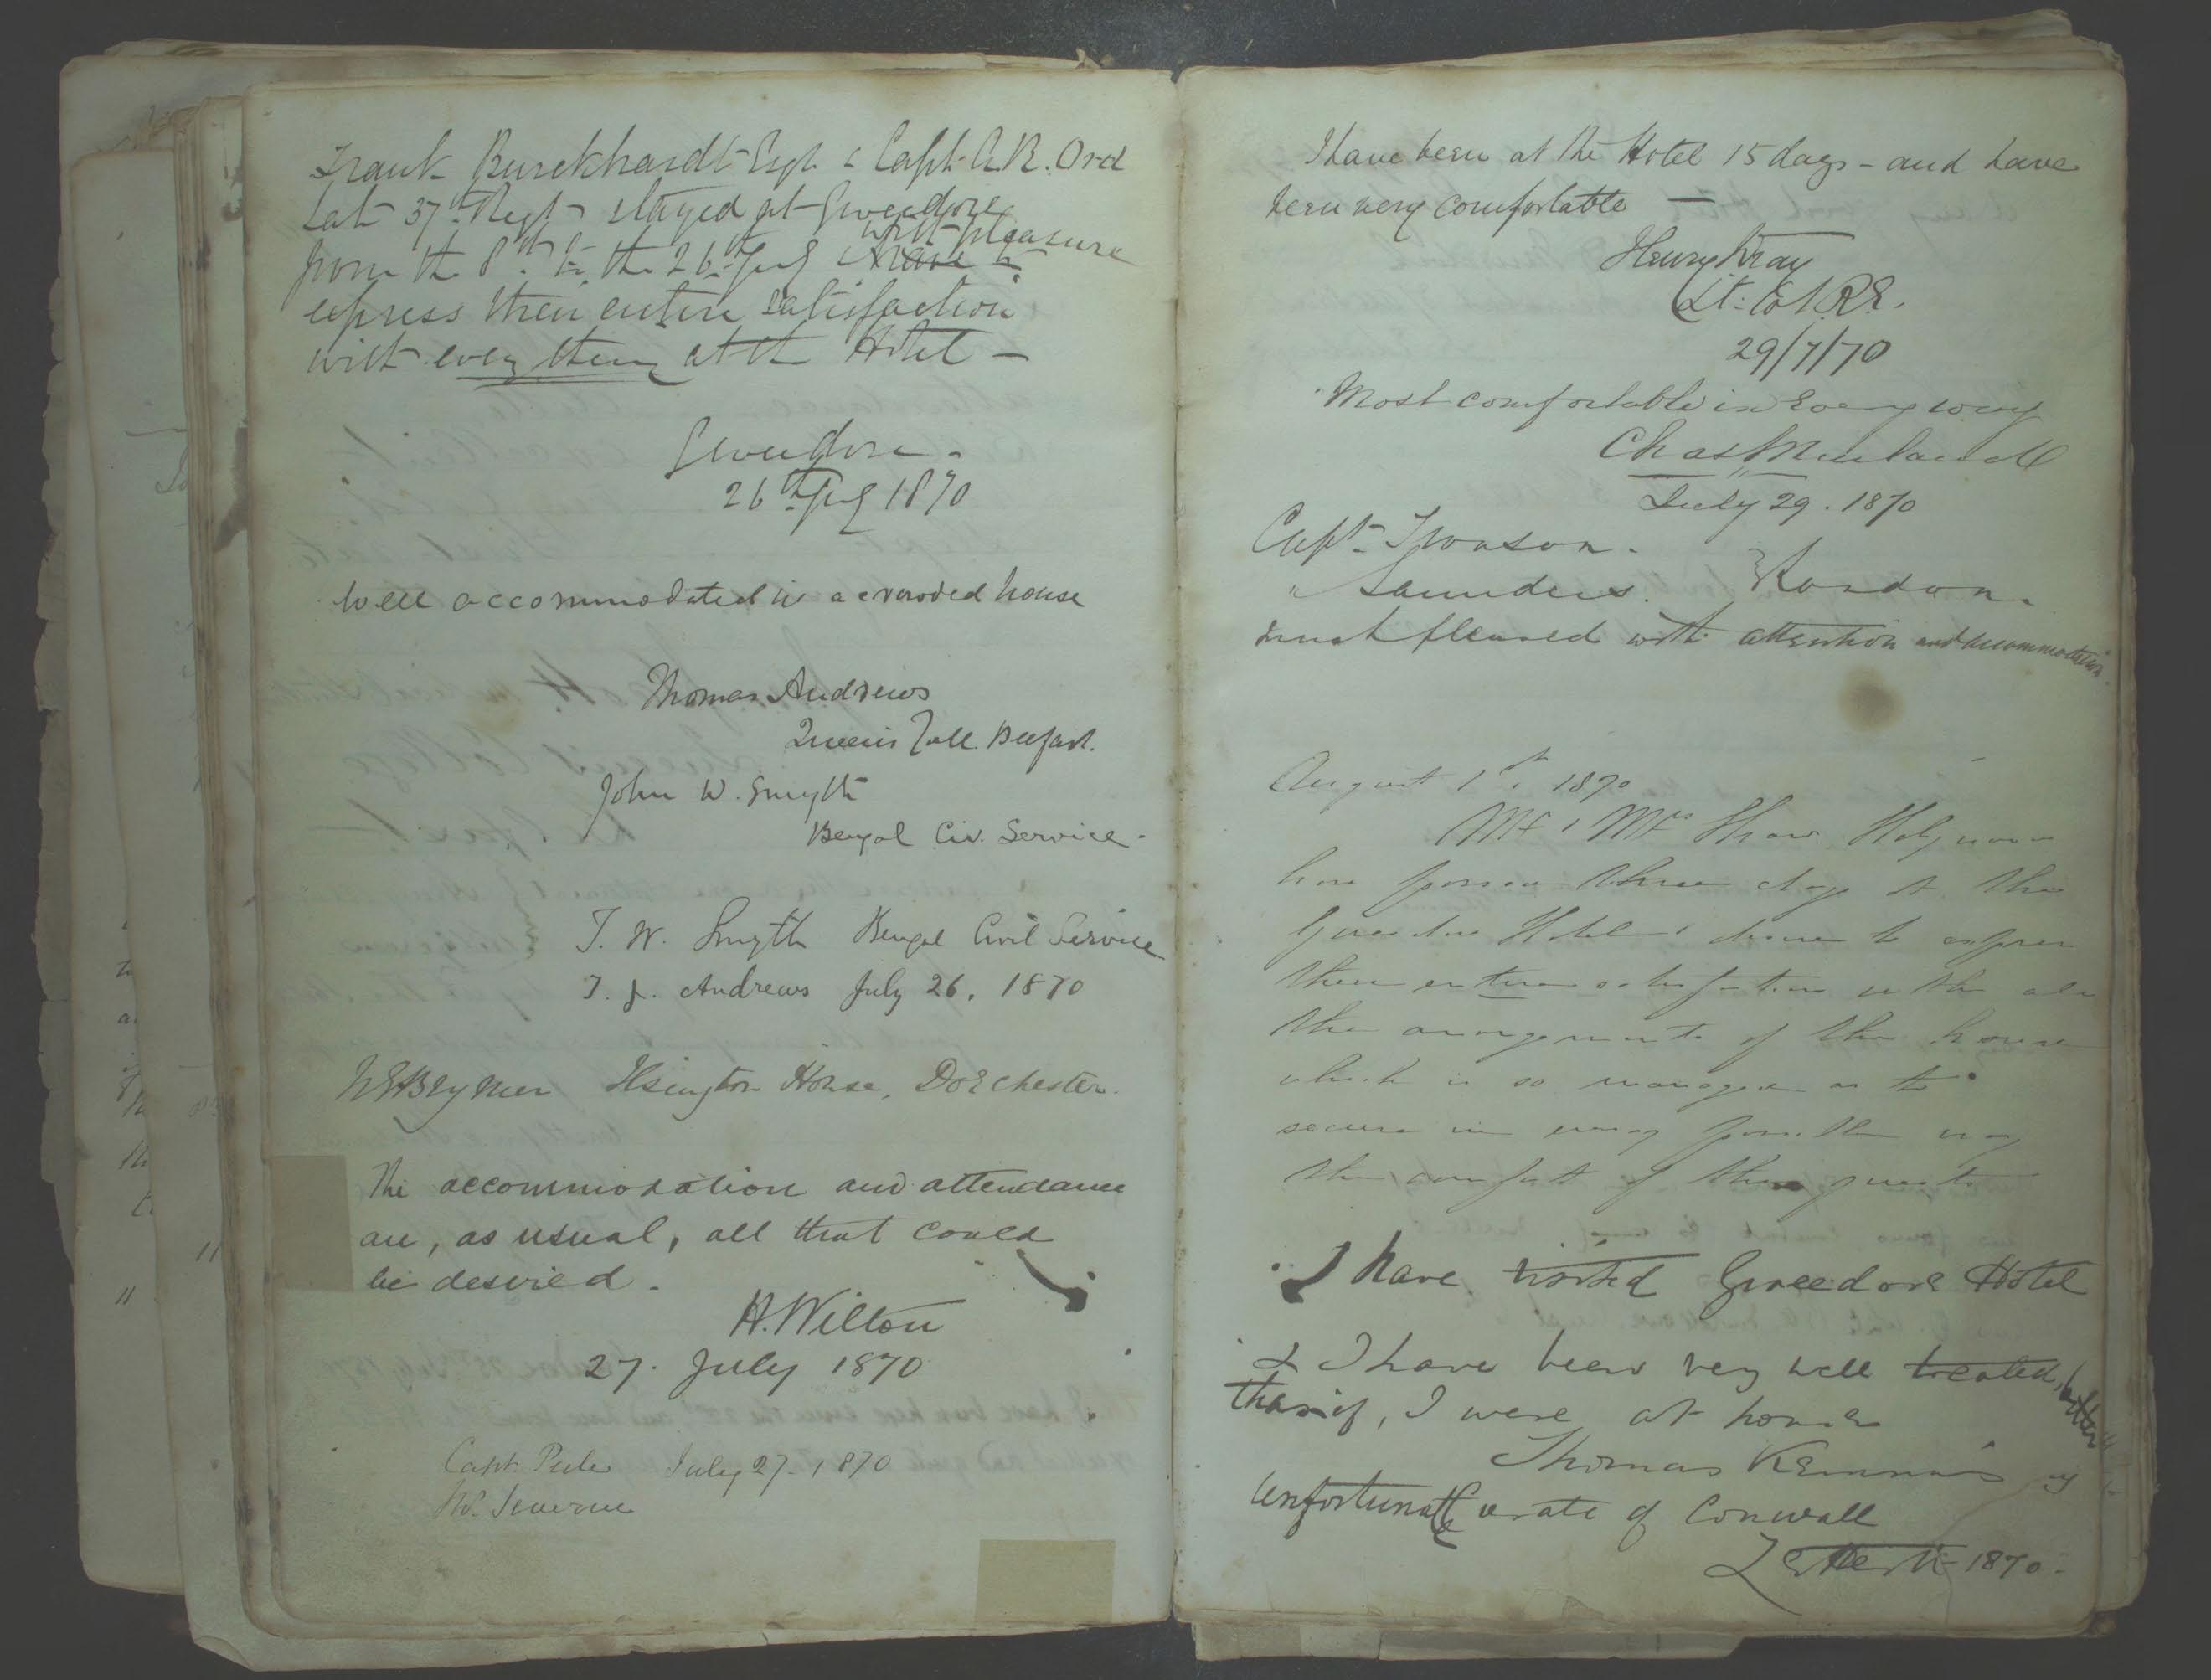 Frank Burckhardt Esqr & Capt. A.R. Ord
Late 37th Regt stayed at Gweedore
from the 8th to the 26th July & have to
with pleasure
express their entire satisfaction
with every thing at the Hotel -
Gweedore -
26th July 1870
Well accommodated in a crowded house
Thomas Andrews
Queen's Coll. Belfast.
John W. Smyth
Bengal Civ. Service -
T. W. Smyth Bengal Civil Service
T. J. Andrews July 26, 1870
W E Brymer Ilsington House, Dorchester.
The accommodation and attendance
are, as usual, all that could
be desired.
H. Wilton
27. July 1870
Capt. July 27 - 1870
Mr. Severne
I have been at the Hotel 15 days - and have
been very comfortable -
Henry Wray
Lt: Col. R.E.
29/7/70
Most comfortable in every way
Chas
July 29. 1870
Capt.
" Saunders. } London.
much pleased with attention and accommodation.
August 1st, 1870
Mr & Mrs Shaw Holywood
have passed three days at the
Gweedore Hotel & desire to express
their entire satisfaction with all
the arrangements of the house
which is so managed as to
secure in every possible way
the comfort of the guests
I have visited Gweedore Hotel
& I have been very well treated, better
than if, I were at home
Thomas
unfortunate Curate of Conwall
Letterk- 1870.